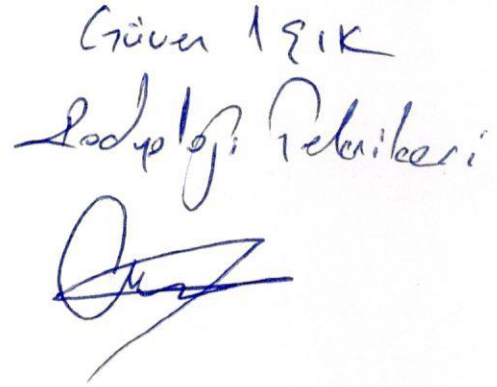 Güven IŞIK
Radyoloji Teknikeri